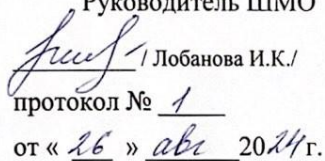 Руководитель ШМО
/ Лобанова И.К./
протокол № 1
от « 26 » авг 2024 г.